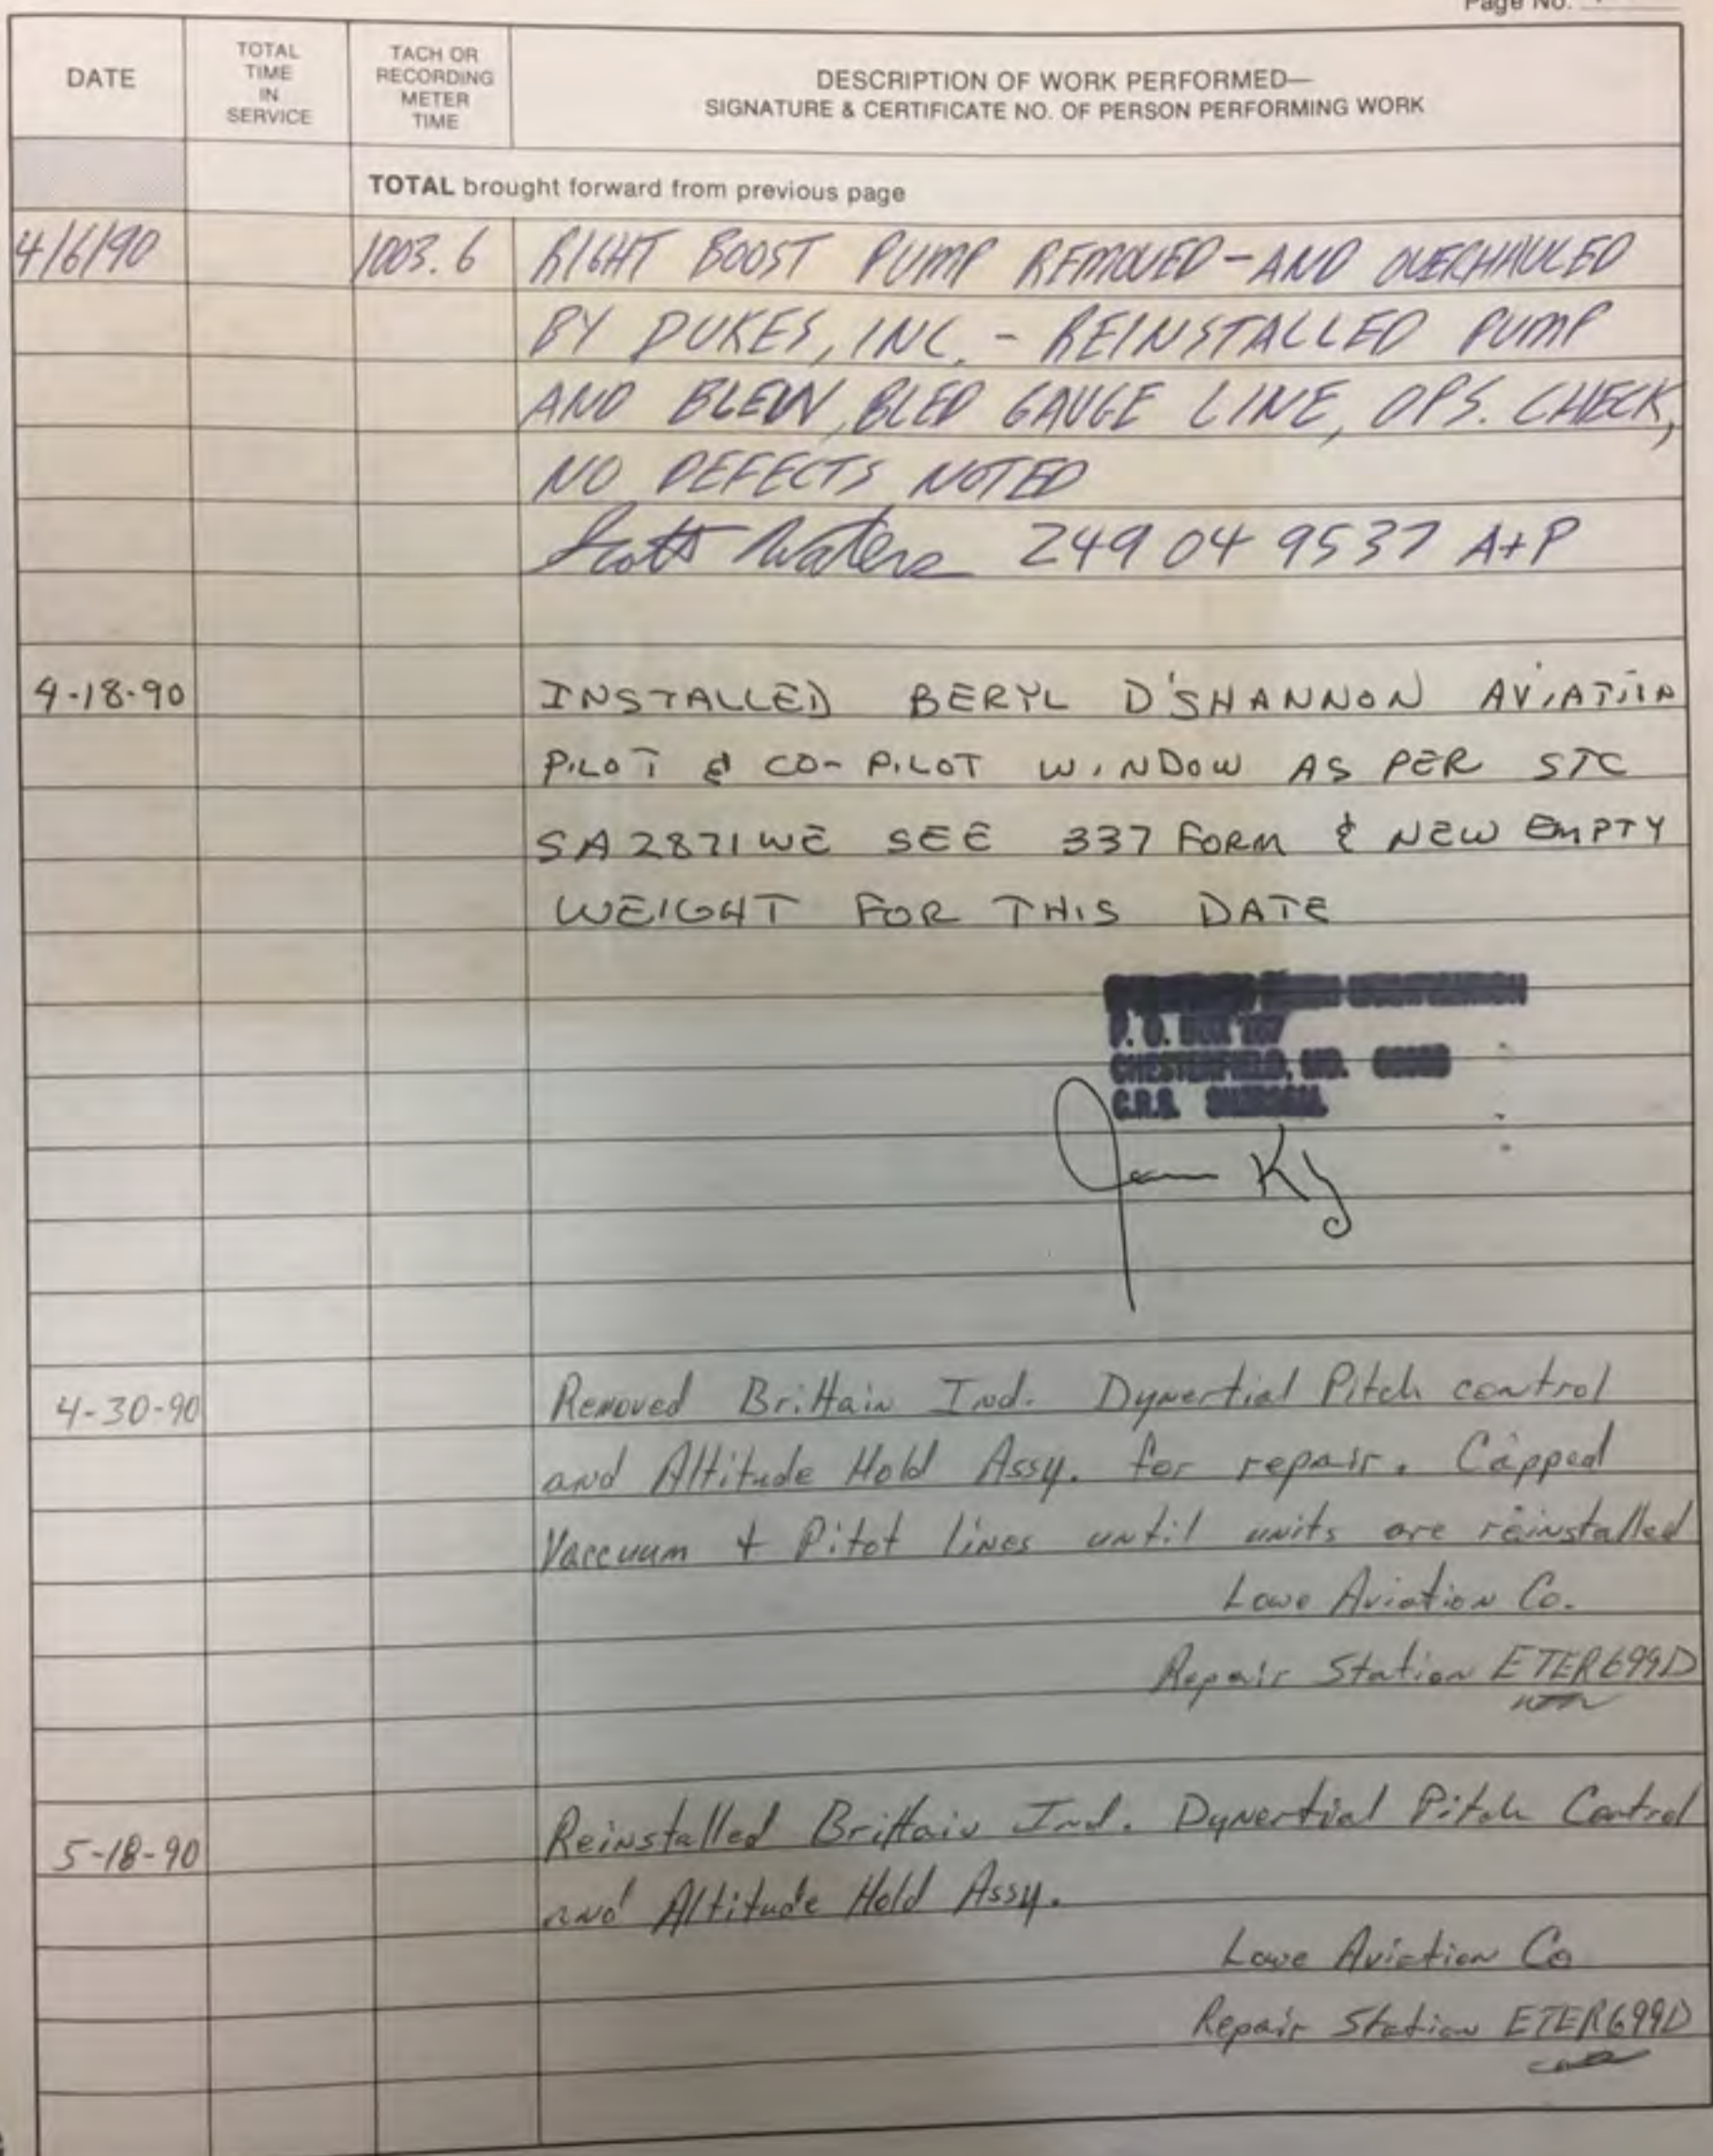 Page No.
DATE
TOTAL
TIME
IN
SERVICE
TACH OR
RECORDING
METER
TIME
DESCRIPTION OF WORK PERFORMED—
SIGNATURE & CERTIFICATE NO. OF PERSON PERFORMING WORK
TOTAL brought forward from previous page
4/6/90 1003.6 RIGHT BOOST PUMP REMOVED - AND OVERHAULED
BY DUKES, INC. - REINSTALLED PUMP
AND BLEW, BLED GAUGE LINE, OPS. CHECK,
NO DEFECTS NOTED
Scott Waters 249 04 9537 A+P
4-18-90 INSTALLED BERYL D'SHANNON AVIATION
PILOT & CO-PILOT WINDOW AS PER STC
SA2871WE SEE 337 FORM & NEW EMPTY
WEIGHT FOR THIS DATE
P. O. BOX 107
CHESTERFIELD, MO.
C.R.S.
4-30-90 Removed Brittain Ind. Dynertial Pitch control
and Altitude Hold Assy. for repair. Capped
Vaccuum + Pitot lines until units are reinstalled
Lowe Aviation Co.
Repair Station ETER699D
5-18-90 Reinstalled Brittain Ind. Dynertial Pitch Control
and Altitude Hold Assy.
Lowe Aviation Co
Repair Station ETER699D